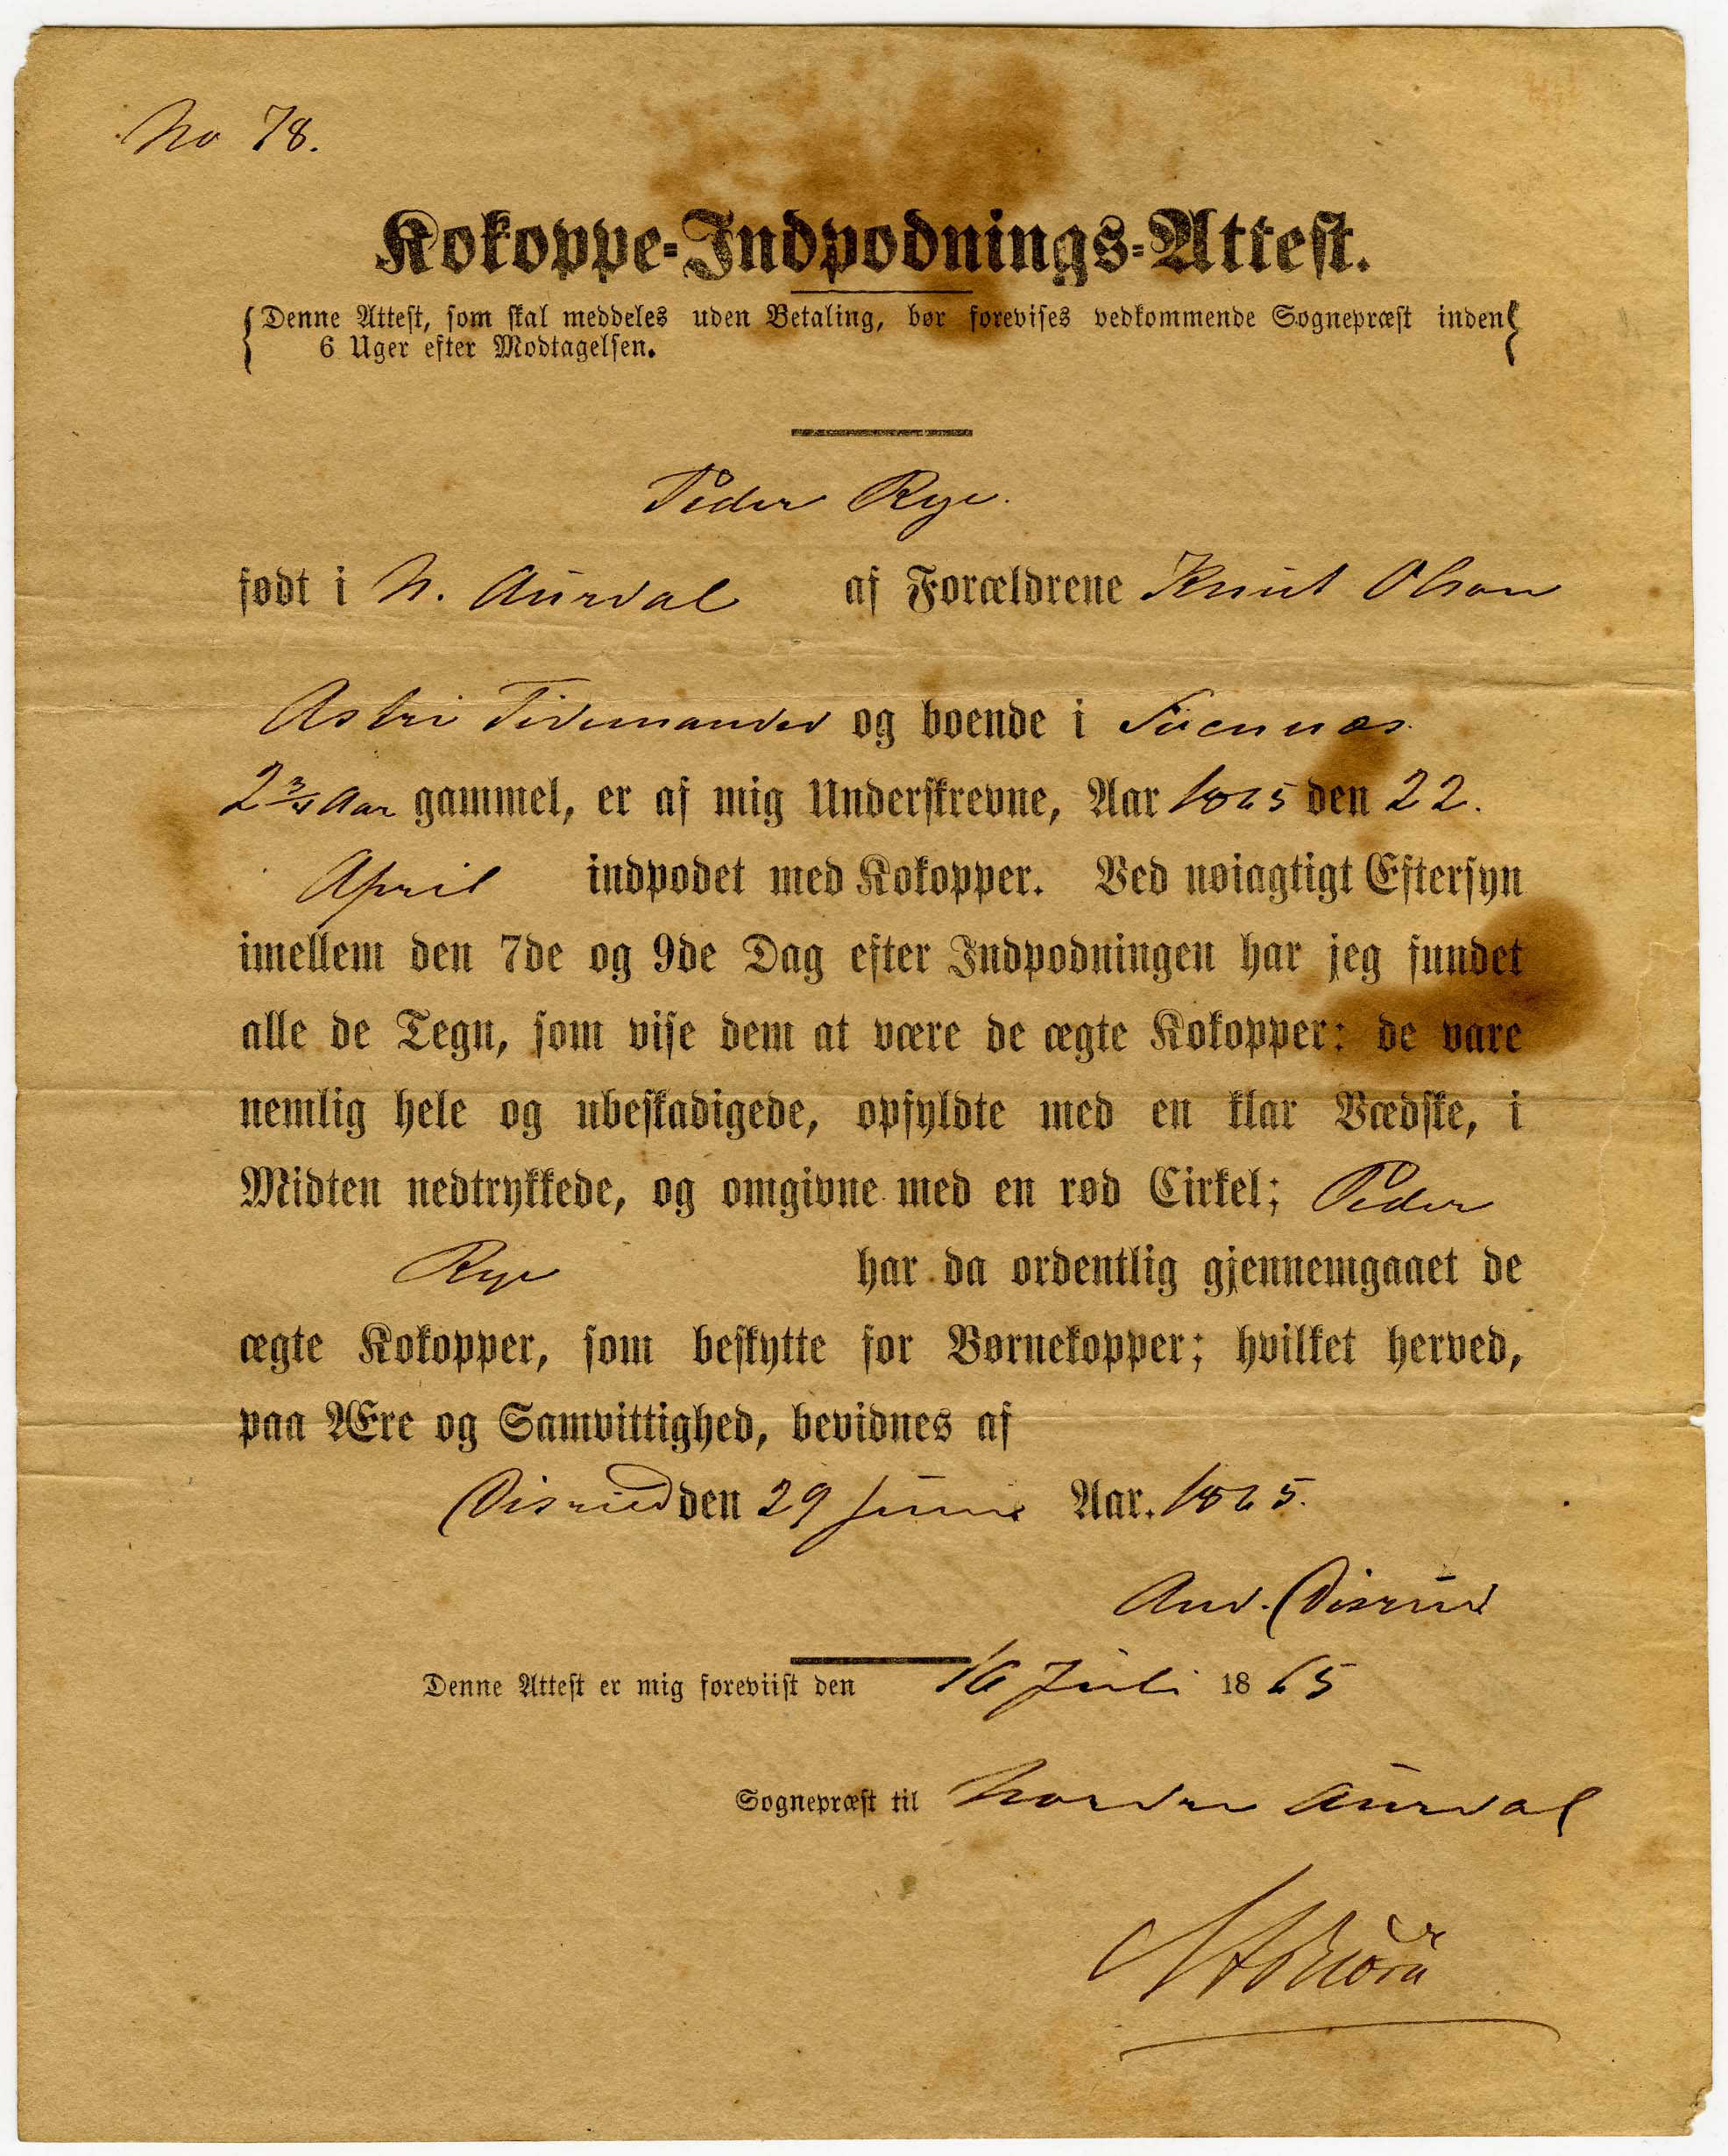 No 78.
Kokoppe-Indpodnings-Attest.
Denne Attest, som skal meddeles uden Betaling, bør forevises vedkommende Sognepræst inden
6 Uger efter Modtagelsen.
Peder Rye.
født i N. Aurdal af Forældrene Knut Olson
Astri Tidemandsd og boende i
2 3/4 Aar gammel, er af mig Underskrevne, Aar 1865 den 22.
April indpodet med Kokopper. Ved nøiagtigt Eftersyn
imellem den 7de og 9de Dag efter Indpodningen har jeg fundet
alle de Tegn, som vise dem at være de ægte Kokopper: de vare
nemlig hele og ubeskadigede, opfyldte med en klar Vædske, i
Midten nedtrykkede, og omgivne med en rød Cirkel; Peder
Rye har da ordentlig gjennemgaaet de
ægte Kokopper, som beskytte for Børnekopper; hvilket herved,
paa Ære og Samvittighed, bevidnes af
Disrud den 29 Juni Aar. 1865.
And. Disrud
Denne Attest er mig foreviist den 16 Juli 1865
Sognepræst til Nordre Aurdal